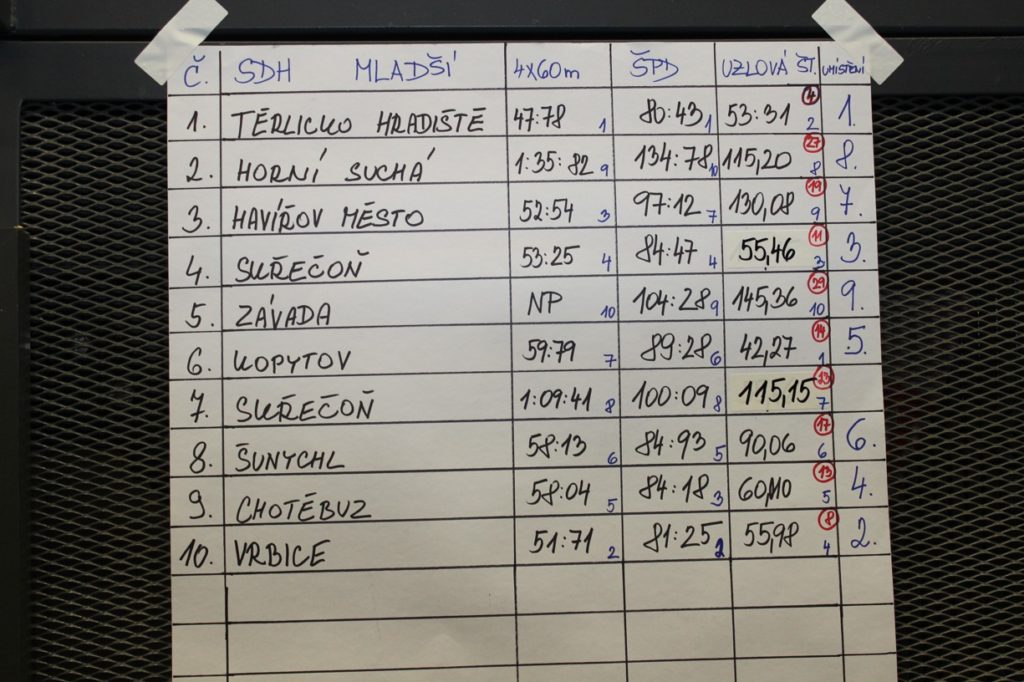 Č. SDH MLADŠÍ 4x60m ŠPD UZLOVÁ ŠT. UMÍSTĚNÍ
1. TĚRLICKO HRADIŠTĚ 47:78 1 80:43 1 53:31 4 2 1.
2. HORNÍ SUCHÁ 1:35:82 9 134:78 10 115,20 27 8 8.
3. HAVÍŘOV MĚSTO 52:54 3 97:12 7 130,08 19 9 7.
4. SKŘEČOŇ 53:25 4 84:47 4 55,46 11 3 3.
5. ZÁVADA NP 10 104:28 9 145,36 29 10 9.
6. KOPYTOV 59:79 7 89:28 6 42,27 14 1 5.
7. SKŘEČOŇ 1:09:41 8 100:09 8 115,15 23 7
8. ŠUNYCHL 58:13 6 84:93 5 90,06 17 6 6.
9. CHOTĚBUZ 58:04 5 84:18 3 13 5 4.
10. VRBICE 51:71 2 81:25 2 55,98 8 4 2.